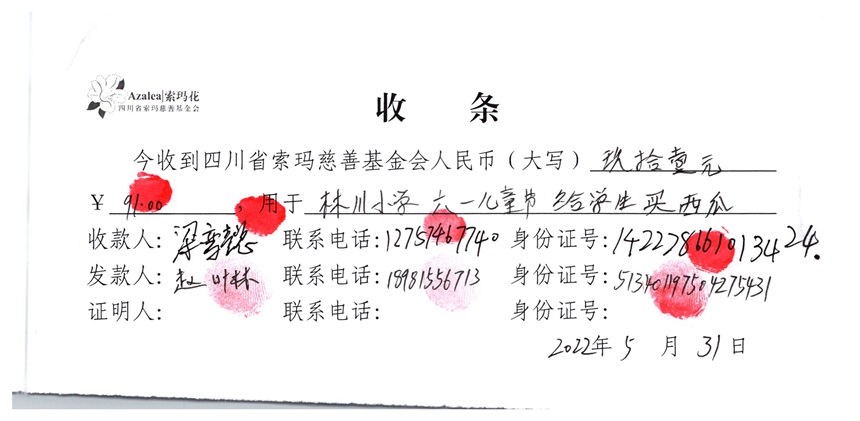 Azalea|索玛花
四川省索玛慈善基金会
收 条
今收到四川省索玛慈善基金会人民币（大写） 玖拾壹元
¥ 91.00 ，用于 林川小学 六一儿童节 给学生买西瓜
收款人： 联系电话：12757467740 身份证号：
发款人：赵叶林 联系电话：15981556713 身份证号：513401197504275431
证明人： 联系电话： 身份证号：
2022年 5 月 31 日